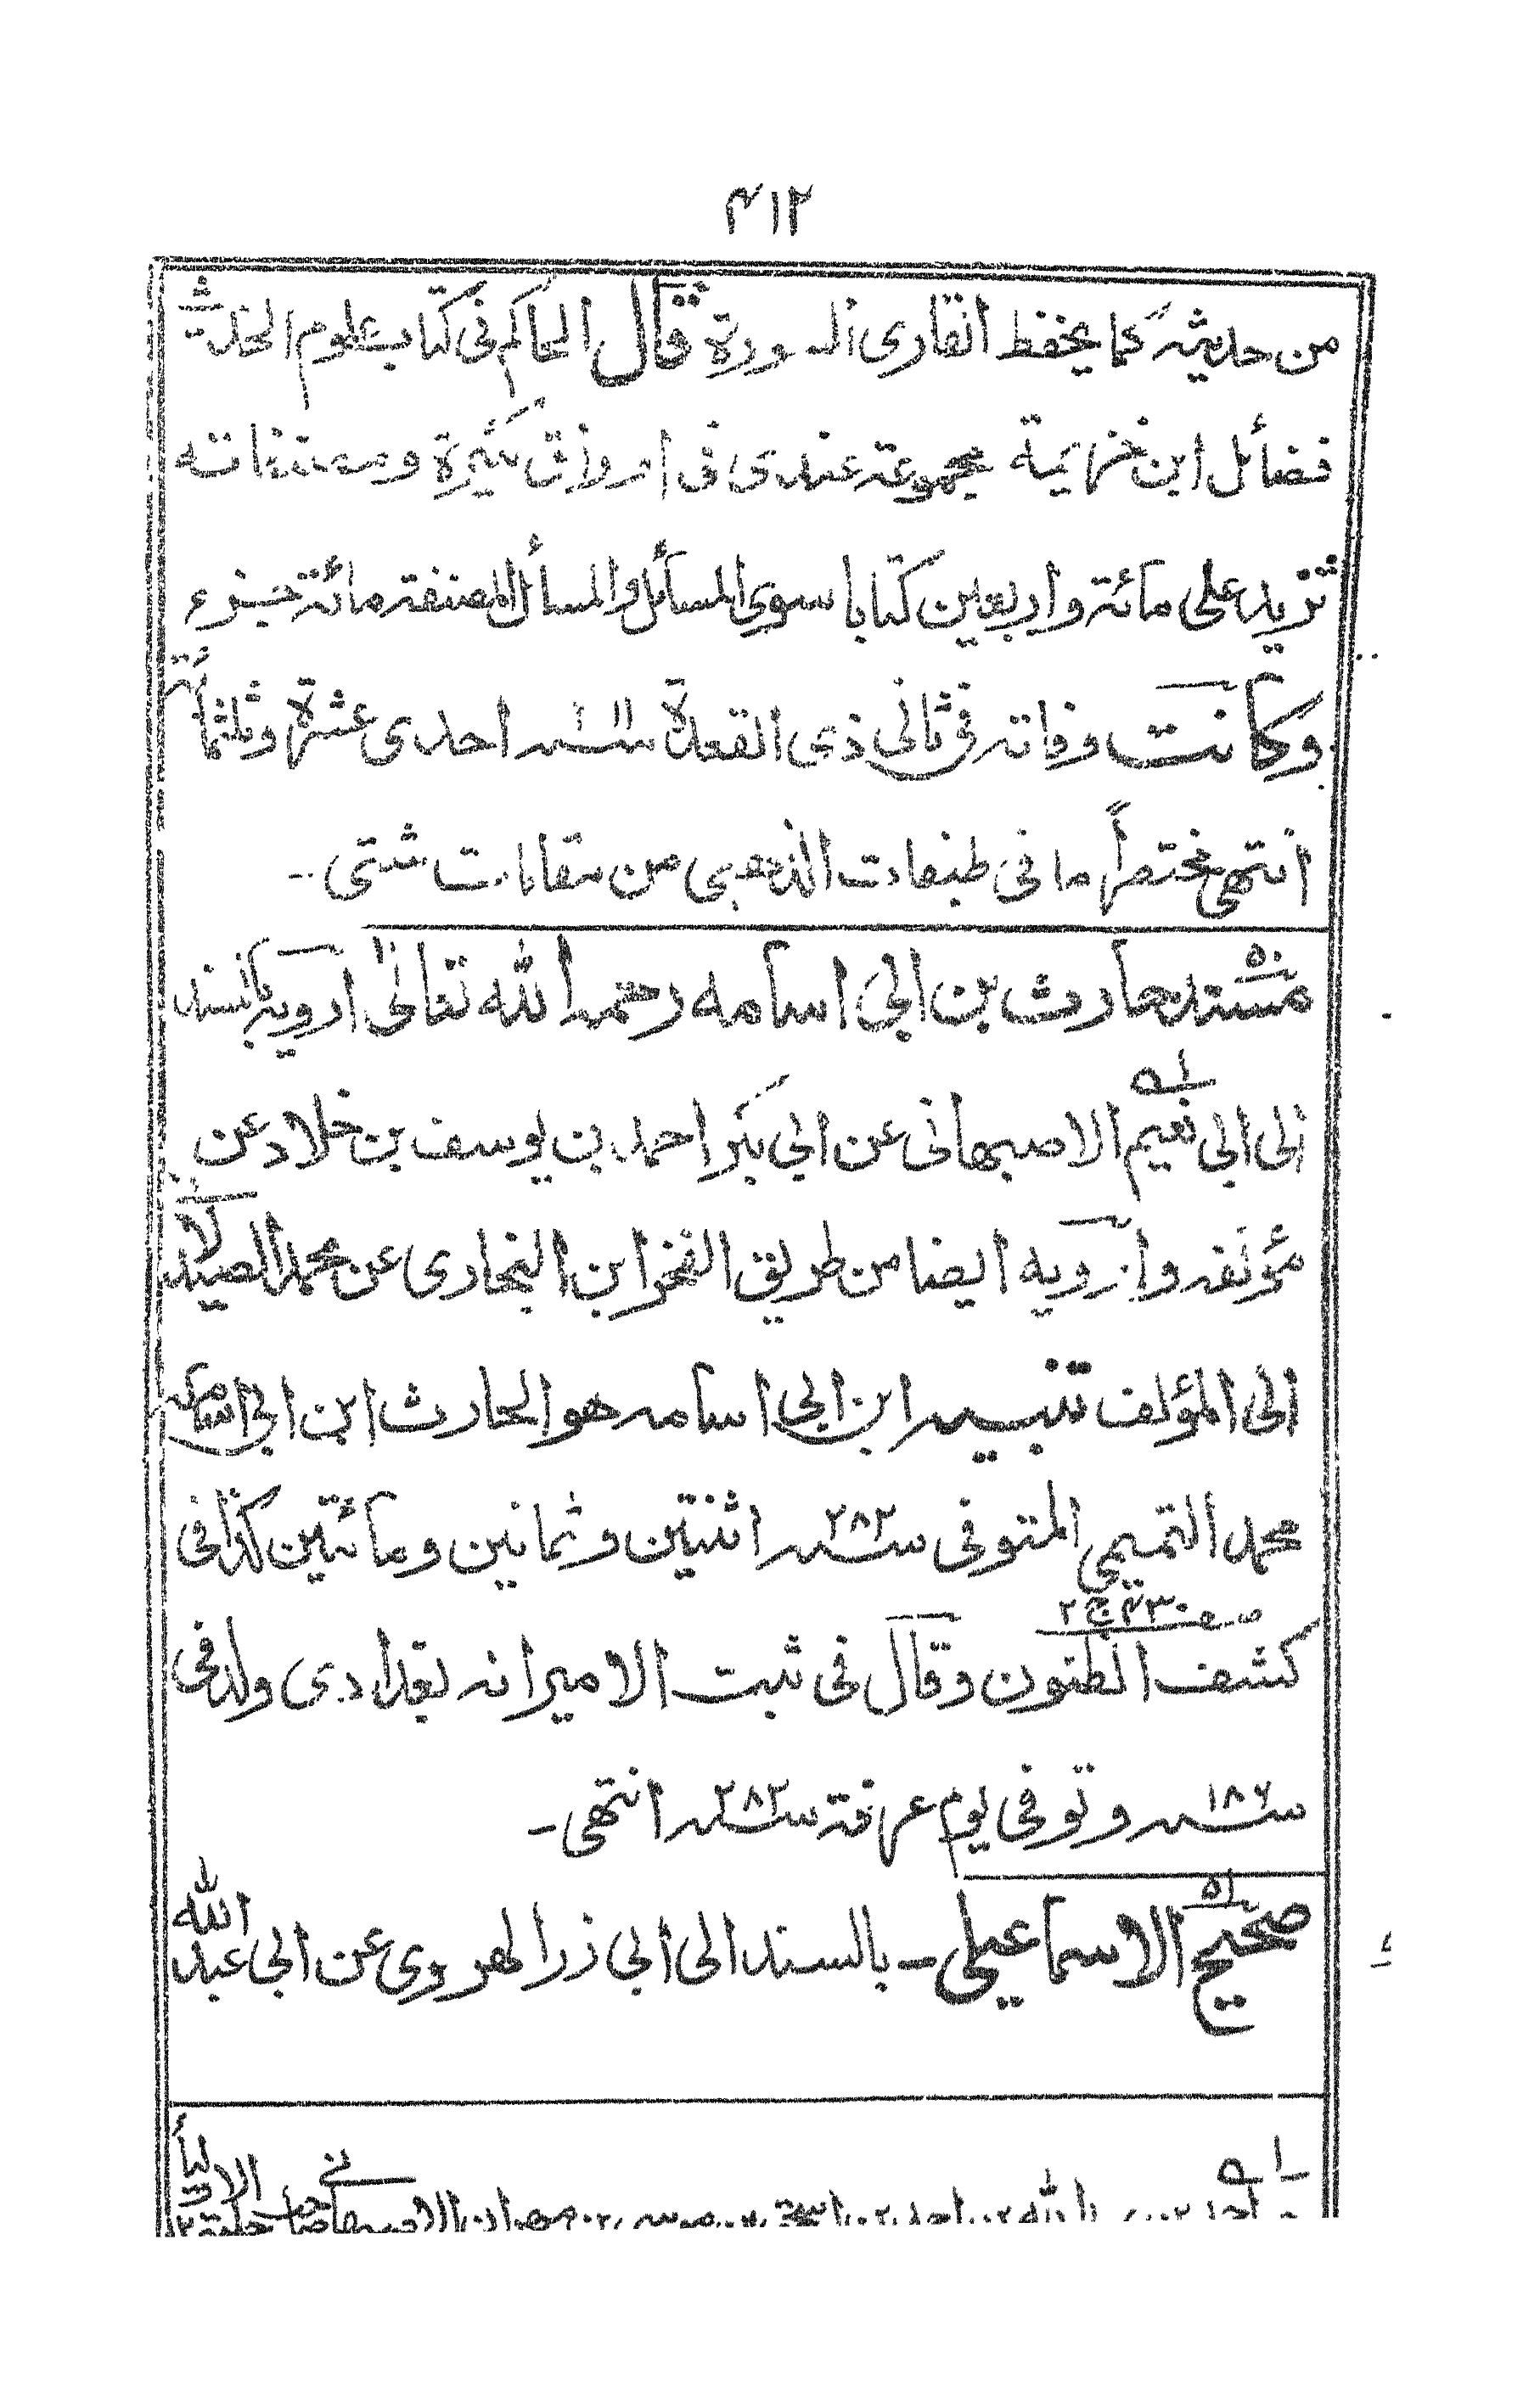 ۴۱۲
من حديثه كما يحفظ القارى السورة قال الحاكم فى كتاب علوم الحديث
فضائل ابن خزيمة مجموعة عندى فى اوراق كثيرة ومصنفاته
تزيد على مائة واربعين كتابا سوى المسائل والمسائل المصنفة مائة جزء
وكانت وفاته فى ثانى ذى القعدة سنة ٣١١ احدى عشرة وثلثمائة
انتهى مختصراً ما فى طبقات الذهبى من مقامات شتى -
مسند حارث بن ابى اسامه رحمه الله تعالى ارويه بالسند
الى ابى نعيم الاصبهانى عن ابى بكر احمد بن يوسف بن خلاد عن
مؤلفه وارويه ايضا من طريق الفخر ابن البخارى عن محمد الصيدلانى
الى المؤلف تنبيه ابن ابى اسامه هو الحارث ابن ابى اسامه
محمد التميمى المتوفى سنة ٢٨٢ اثنتين وثمانين ومائتين كذا فى
كشف الظنون صفه ۴٣٠ ج ٢ وقال فى ثبت الامير انه بغدادى ولد فى
سنة ١٨٦ وتوفى يوم عرفة سنة ٢٨٢ انتهى -
صحيح الاسماعيلى - بالسند الى ابى ذر الهروى عن ابى عبد الله